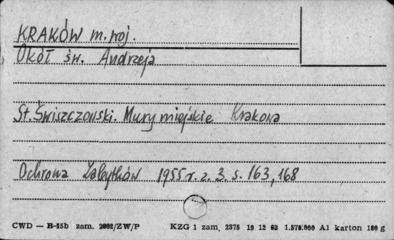 KRAKÓW m. woj.
Okół św. Andrzeja
St. Świszczowski. Mury miejskie Krakowa
Ochrona Zabytków 1955 r. z. 3. s. 163, 168
CWD — B-15b zam. 2082/ZW/P KZG 1 zam. 2375 19 12 62 1.570.000 A1 karton 180 g